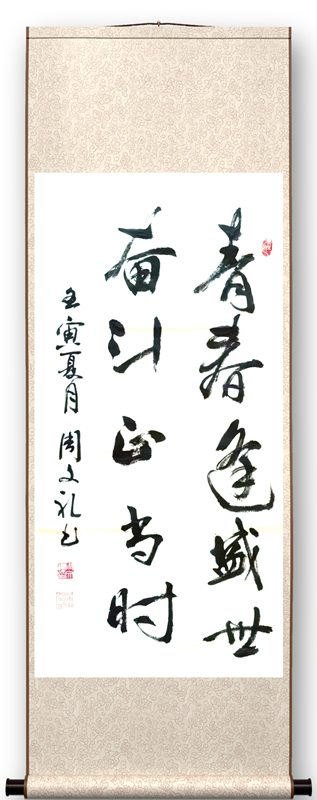 青春逢盛世
奋斗正当时
壬寅夏月 周文礼书